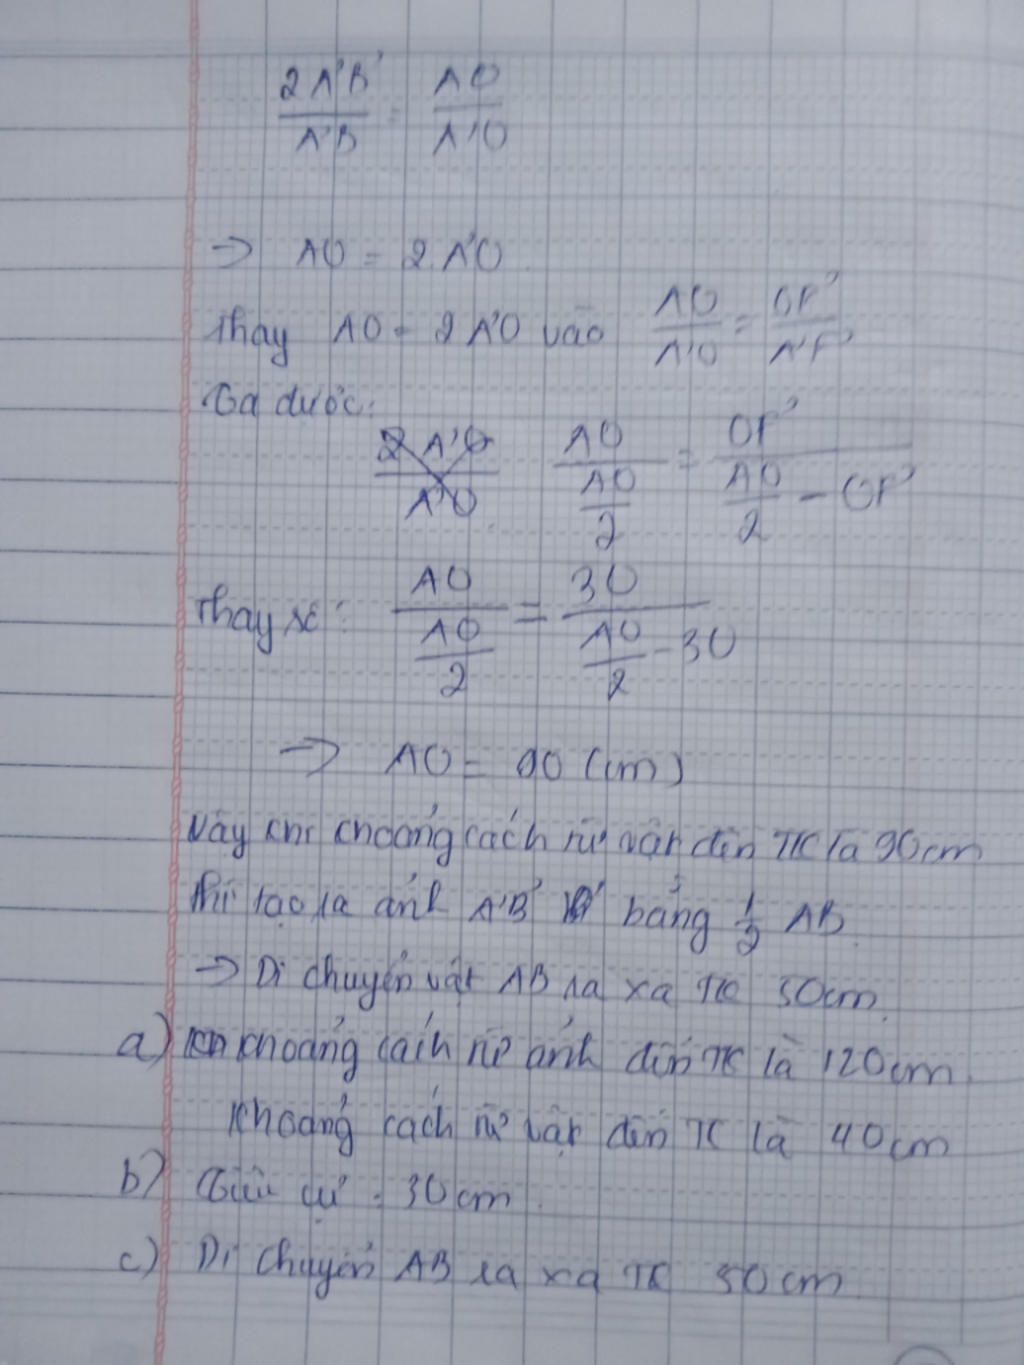 2A'B' / A'B = AO / A'O
→ AO = 2.A'O
Thay AO = 2A'O vào AO / A'O = OF' / A'F'
Ta được:
2 A'O / A'O AO / (AO / 2) = OF' / (AO / 2 - OF')
Thay số: AO / (AO / 2) = 30 / (AO / 2 - 30)
→ AO = 90 (cm)
Vậy khi khoảng cách từ vật đến TK là 90cm
thì tạo ra ảnh A'B' bằng 1/2 AB
→ Di chuyển vật AB ra xa TK 50cm.
a) khoảng cách từ ảnh đến TK là 120cm.
khoảng cách từ vật đến TK là 40cm
b) Tiêu cự = 30cm.
c) Di chuyển AB ra xa TK 50cm